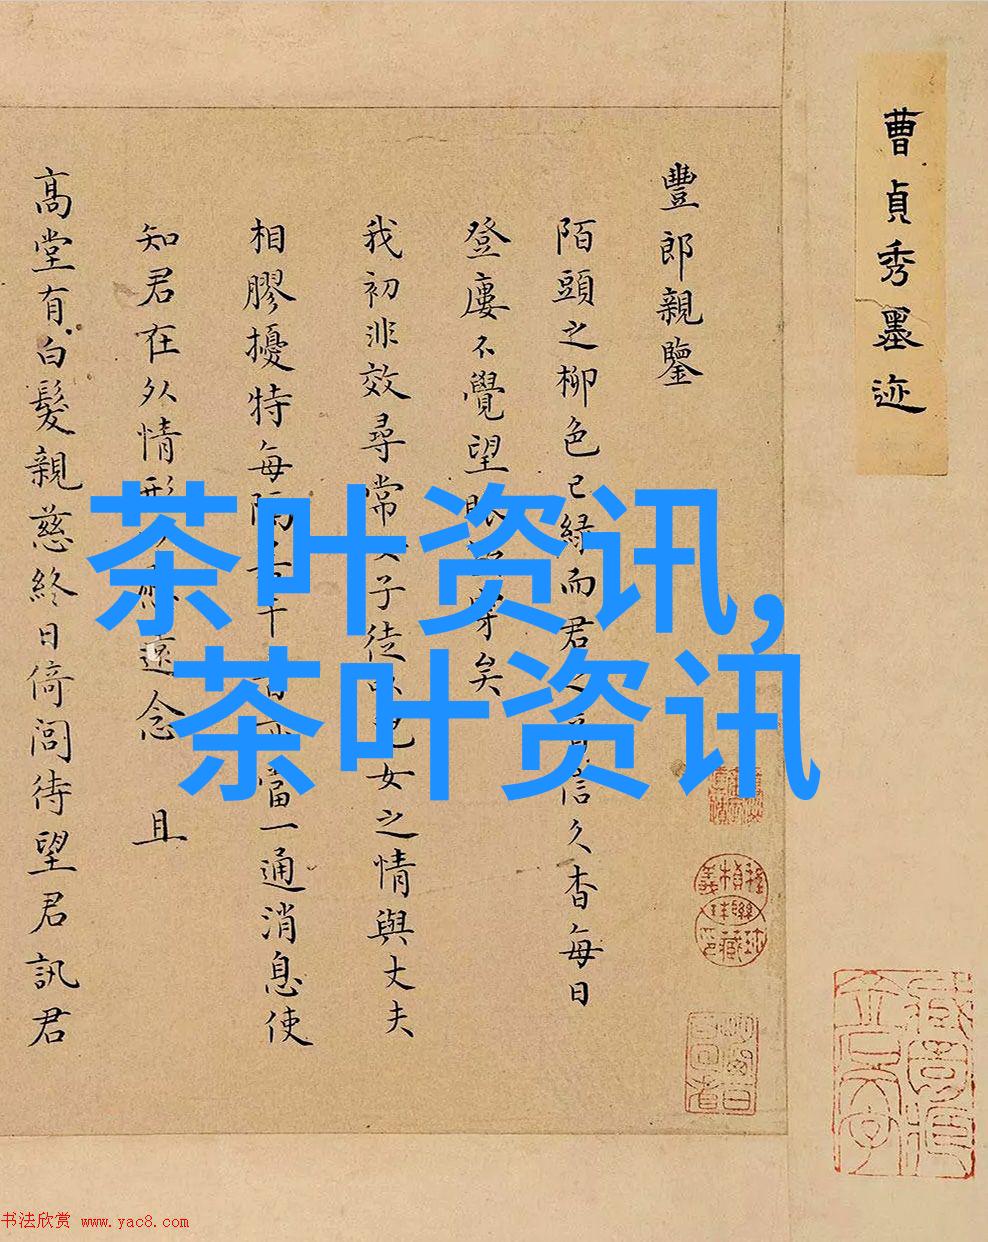 曹貞秀墨迹
豐郎親鑒
陌頭之柳色已緑而君之音信久杳每日
登廔不覺望眼 穿矣
我初非效尋常女子徒以兒女之情與丈夫
相膠擾特每隔 當一通消息使
知君在外情形 遠念 且
高堂有白髮親慈終日倚閭待望君訊君
茶叶资讯,
茶叶资讯
书法欣赏 www.yac8.com